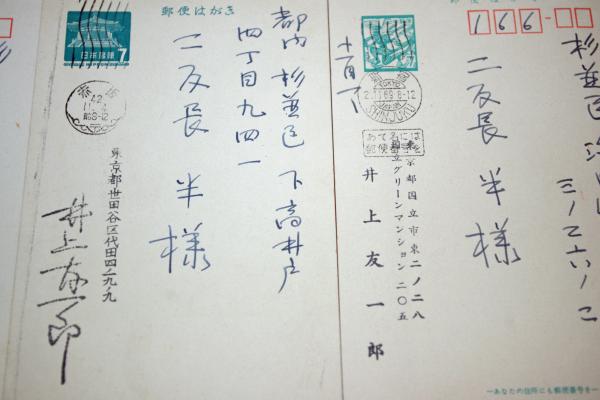 郵便はがき
日本郵便
7
都内 杉並区 下高井戸
四丁目九四一
二反長 半 様
東京都世田谷区代田四ノ九ノ九
井上友一郎
166
二反長 半 様
十一月一日
SHINJUKU
2.11.69.8-12
あて名には
郵便番号を
東京都国立市東二ノ二八
国立グリーンマンション二〇五
井上友一郎
―あなたの住所にも郵便番号を―